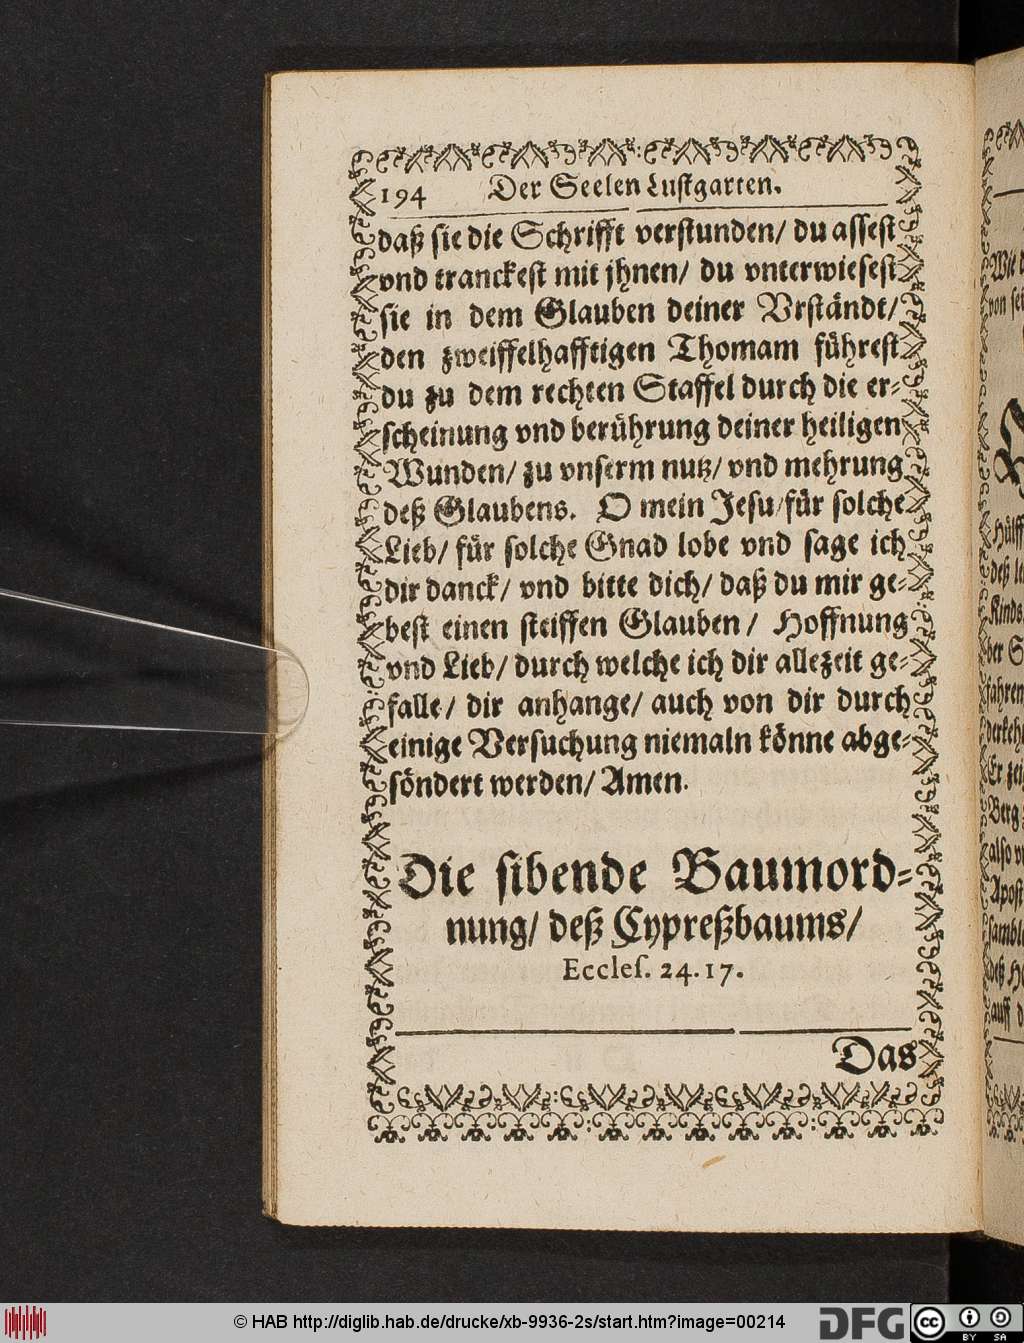 194 Der Seelen Lustgarten.
daß sie die Schrifft verstunden/ du assest
vnd tranckest mit jhnen/ du vnterwiesest
sie in dem Glauben deiner Vrständt/
den zweiffelhafftigen Thomam führest
du zu dem rechten Staffel durch die er-
scheinung vnd berührung deiner heiligen
Wunden/ zu vnserm nutz/ vnd mehrung
deß Glaubens. O mein Jesu/ für solche
Lieb/ für solche Gnad lobe vnd sage ich
dir danck/ vnd bitte dich/ daß du mir ge-
best einen steiffen Glauben/ Hoffnung
vnd Lieb/ durch welche ich dir allezeit ge-
falle/ dir anhange/ auch von dir durch
einige Versuchung niemaln könne abge-
söndert werden/ Amen.
Die sibende Baumord-
nung/ deß Cypreßbaums/
Eccles. 24.17.
Das
© HAB http://diglib.hab.de/drucke/xb-9936-2s/start.htm?image=00214
DFG
cc BY SA